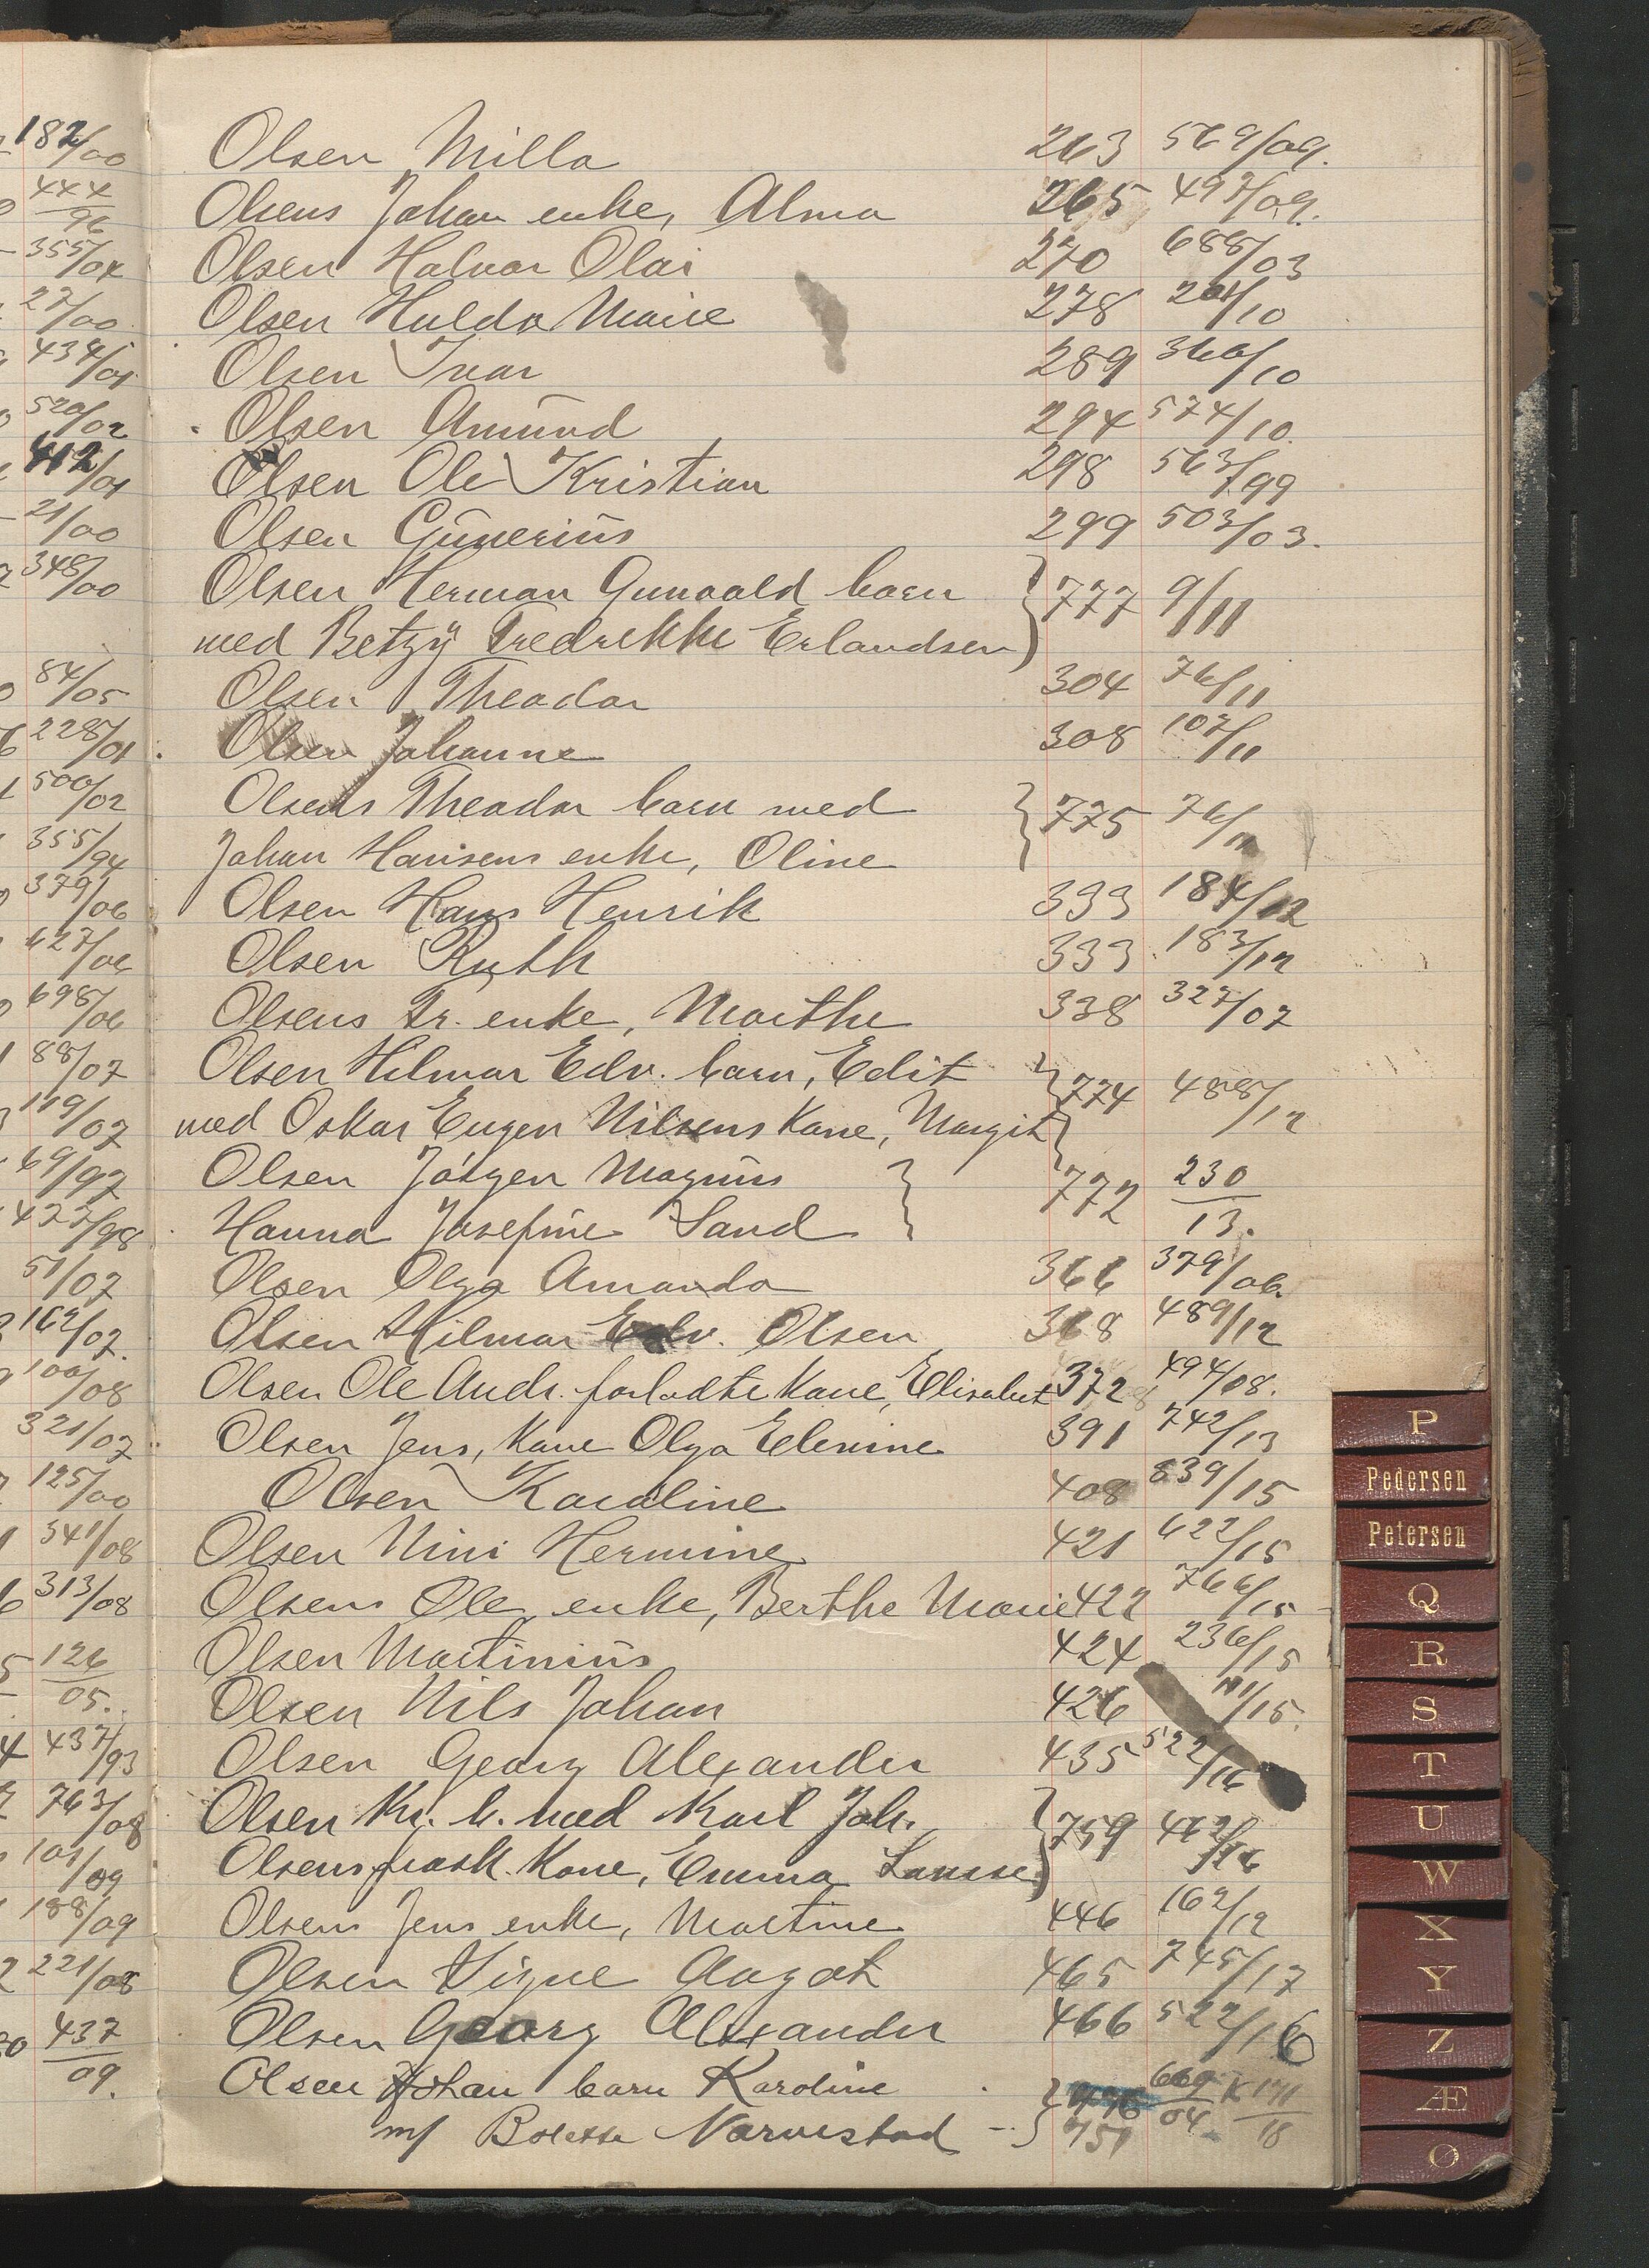 182/00
444/96
355/04
27/00
434/01
520/02
412/01
21/00
348/00
84/05
228/01
500/02
355/94
379/06
627/06
698/06
88/07
119/07
69/97
427/98
51/07
162/07.
100/08
321/07
125/00
341/08
313/08
126/05.
437/93
763/08
101/09
188/09
221/08
437/09.
Olsen Milla 263 569/09.
Olsens Johan enke, Alma 265 497/09.
Olsen Halvor Olai 270 688/03
Olsen Hulda Marie 278 201/10
Olsen Ivar 289 366/10
Olsen Amund 294 574/10.
Olsen Ole Kristian 298 563/99
Olsen Gunerius 299 503/03.
Olsen Herman Gunvald barn } 777 9/11
med Betzy Fredrikke Erlandsen
Olsen Theodor 304 76/11
Olsen Johanne 308 107/11
Olsens Theodor barn med } 775 76/11
Johan Hansens enke, Oline
Olsen Hans Henrik 333 184/12
Olsen Ruth 333 183/12
Olsens Fr. enke, Marthe 338 327/07
Olsen Hilmar Edv. barn, Edit } 774 488/12
med Oskar Eugen Nilsens Kone, Margit
Olsen Jørgen Magnus } 772 230/13.
Hanna Josefine Sand
Olsen Olga Amanda 366 379/06.
Olsen Hilmar Edv. Olsen 368 489/12
Olsen Ole Andr. forladte Kone, Elisabet 372 494/08.
Olsen Jens, Kone Olga Elevine 391 742/13
Olsen Karoline 408 839/15
Olsen Nini Hermine 421 622/15
Olsens Ole enke, Berthe Marie 422 766/15
Olsen Martinius 424 236/15
Olsen Nils Johan 426 111/15.
Olsen Georg Alexander 435 522/16
Olsen Kr. b. med Karl Joh. } 759 462/16
Olsens frask. Kone, Emma
Olsens Jens enke, Martine 446 162/12
Olsen Signe Aagot 465 745/17
Olsen Georg Alexander 466 522/16
Olsen Johan barn Karoline } 669/04 K 171/18
m/ Bolette Narvestad 751
P
Pedersen
Petersen
Q
R
S
T
U
W
X
Y
Z
Æ
Ø